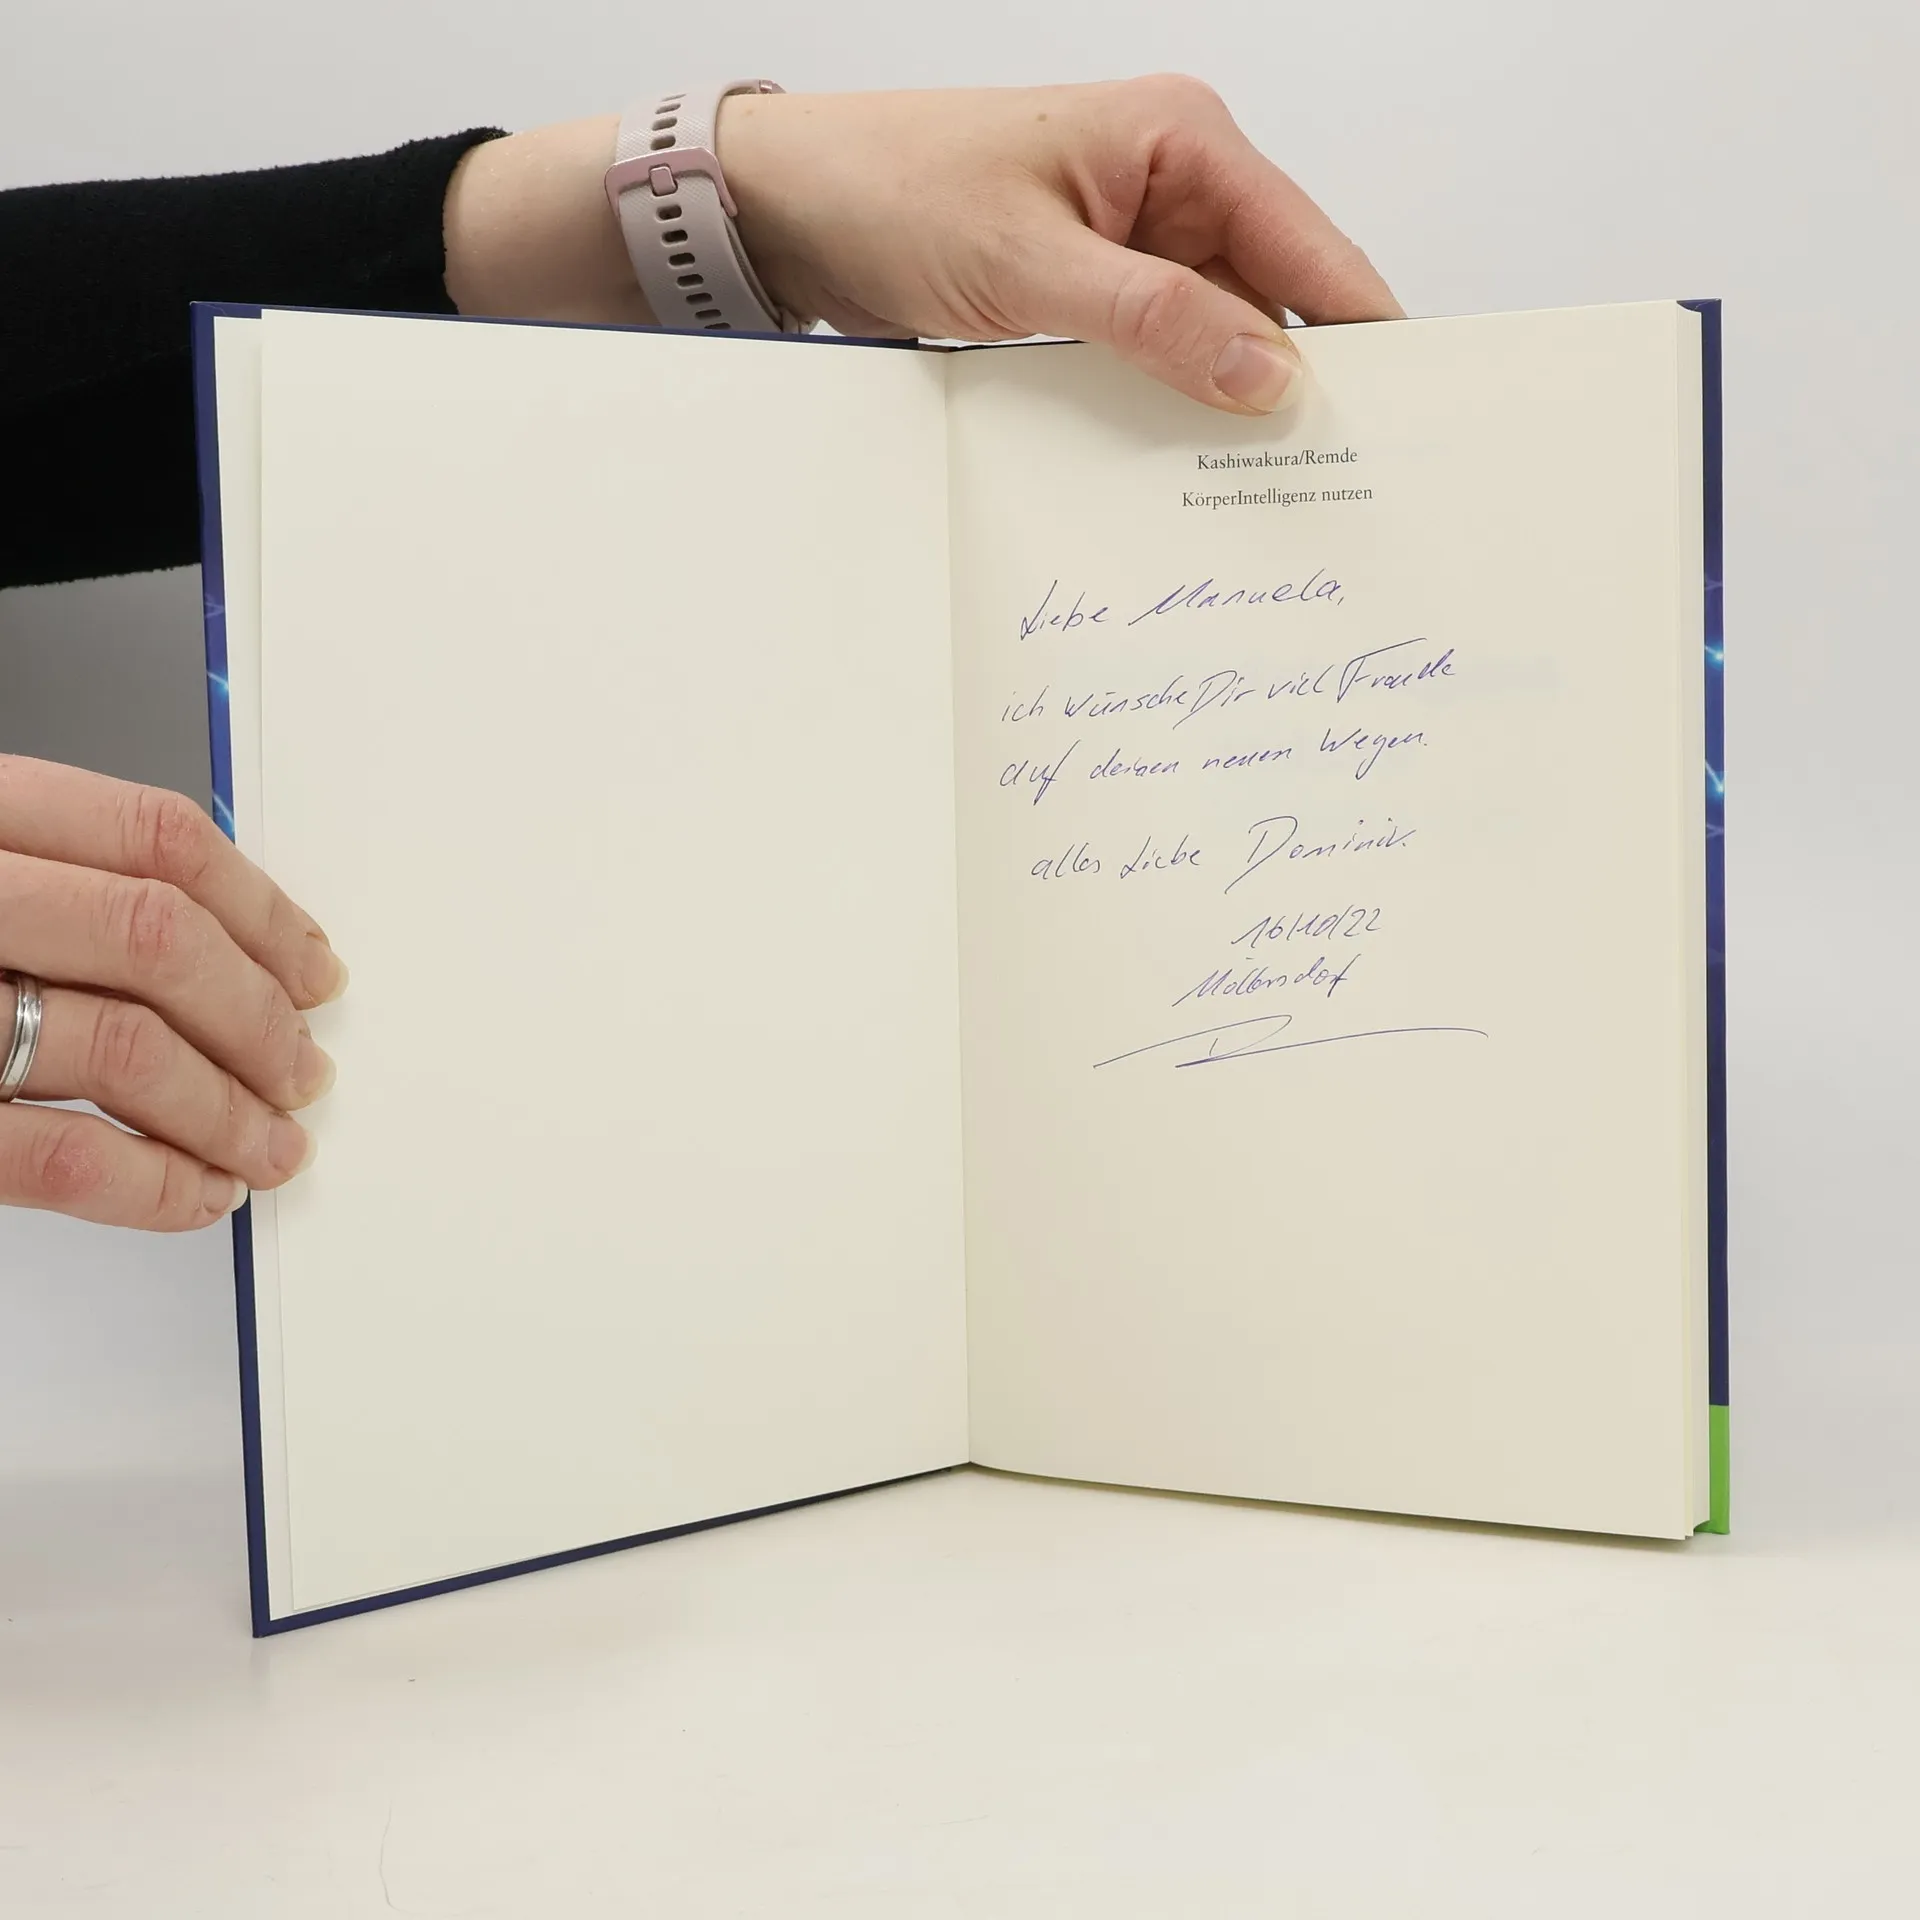 Kashiwakura/Remde
KörperIntelligenz nutzen
Liebe Manuela,
ich wünsche Dir viel Freude
auf deinen neuen Wegen.
alles Liebe Dominik.
16/10/22
Möllersdorf